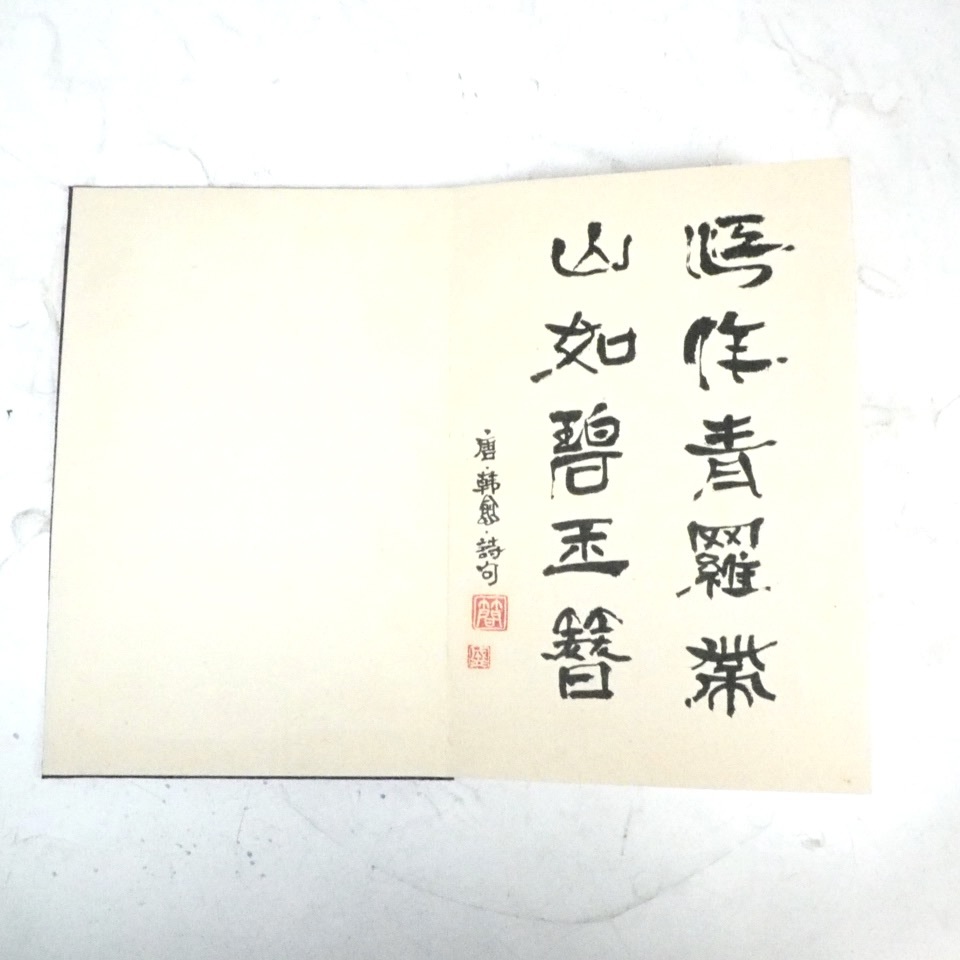 江作青羅帶
山如碧玉簪
·唐·韩愈·詩句